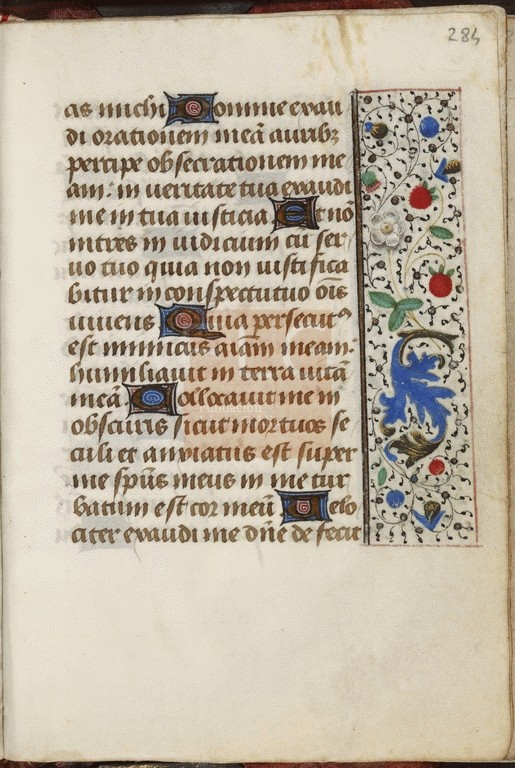 284
as michi Domine exau
di orationem meā auribꝫ
percipe obsecrationem me
am: in ueritate tua exaudi
me in tua iusticia Et nō
intres in iudicium cū ser
uo tuo quia non iustifica
bitur in conspectu tuo oīs
uiuens Quia persecutꝰ
est inimicus aīam meam:
humiliauit in terra uitā
meā Collocauit me in
obscuris sicut mortuos se
culi et anxiatus est super
me spūs meus in me tur
batum est cor meū Velo
citer exaudi me dn̄e defecit
Fundación